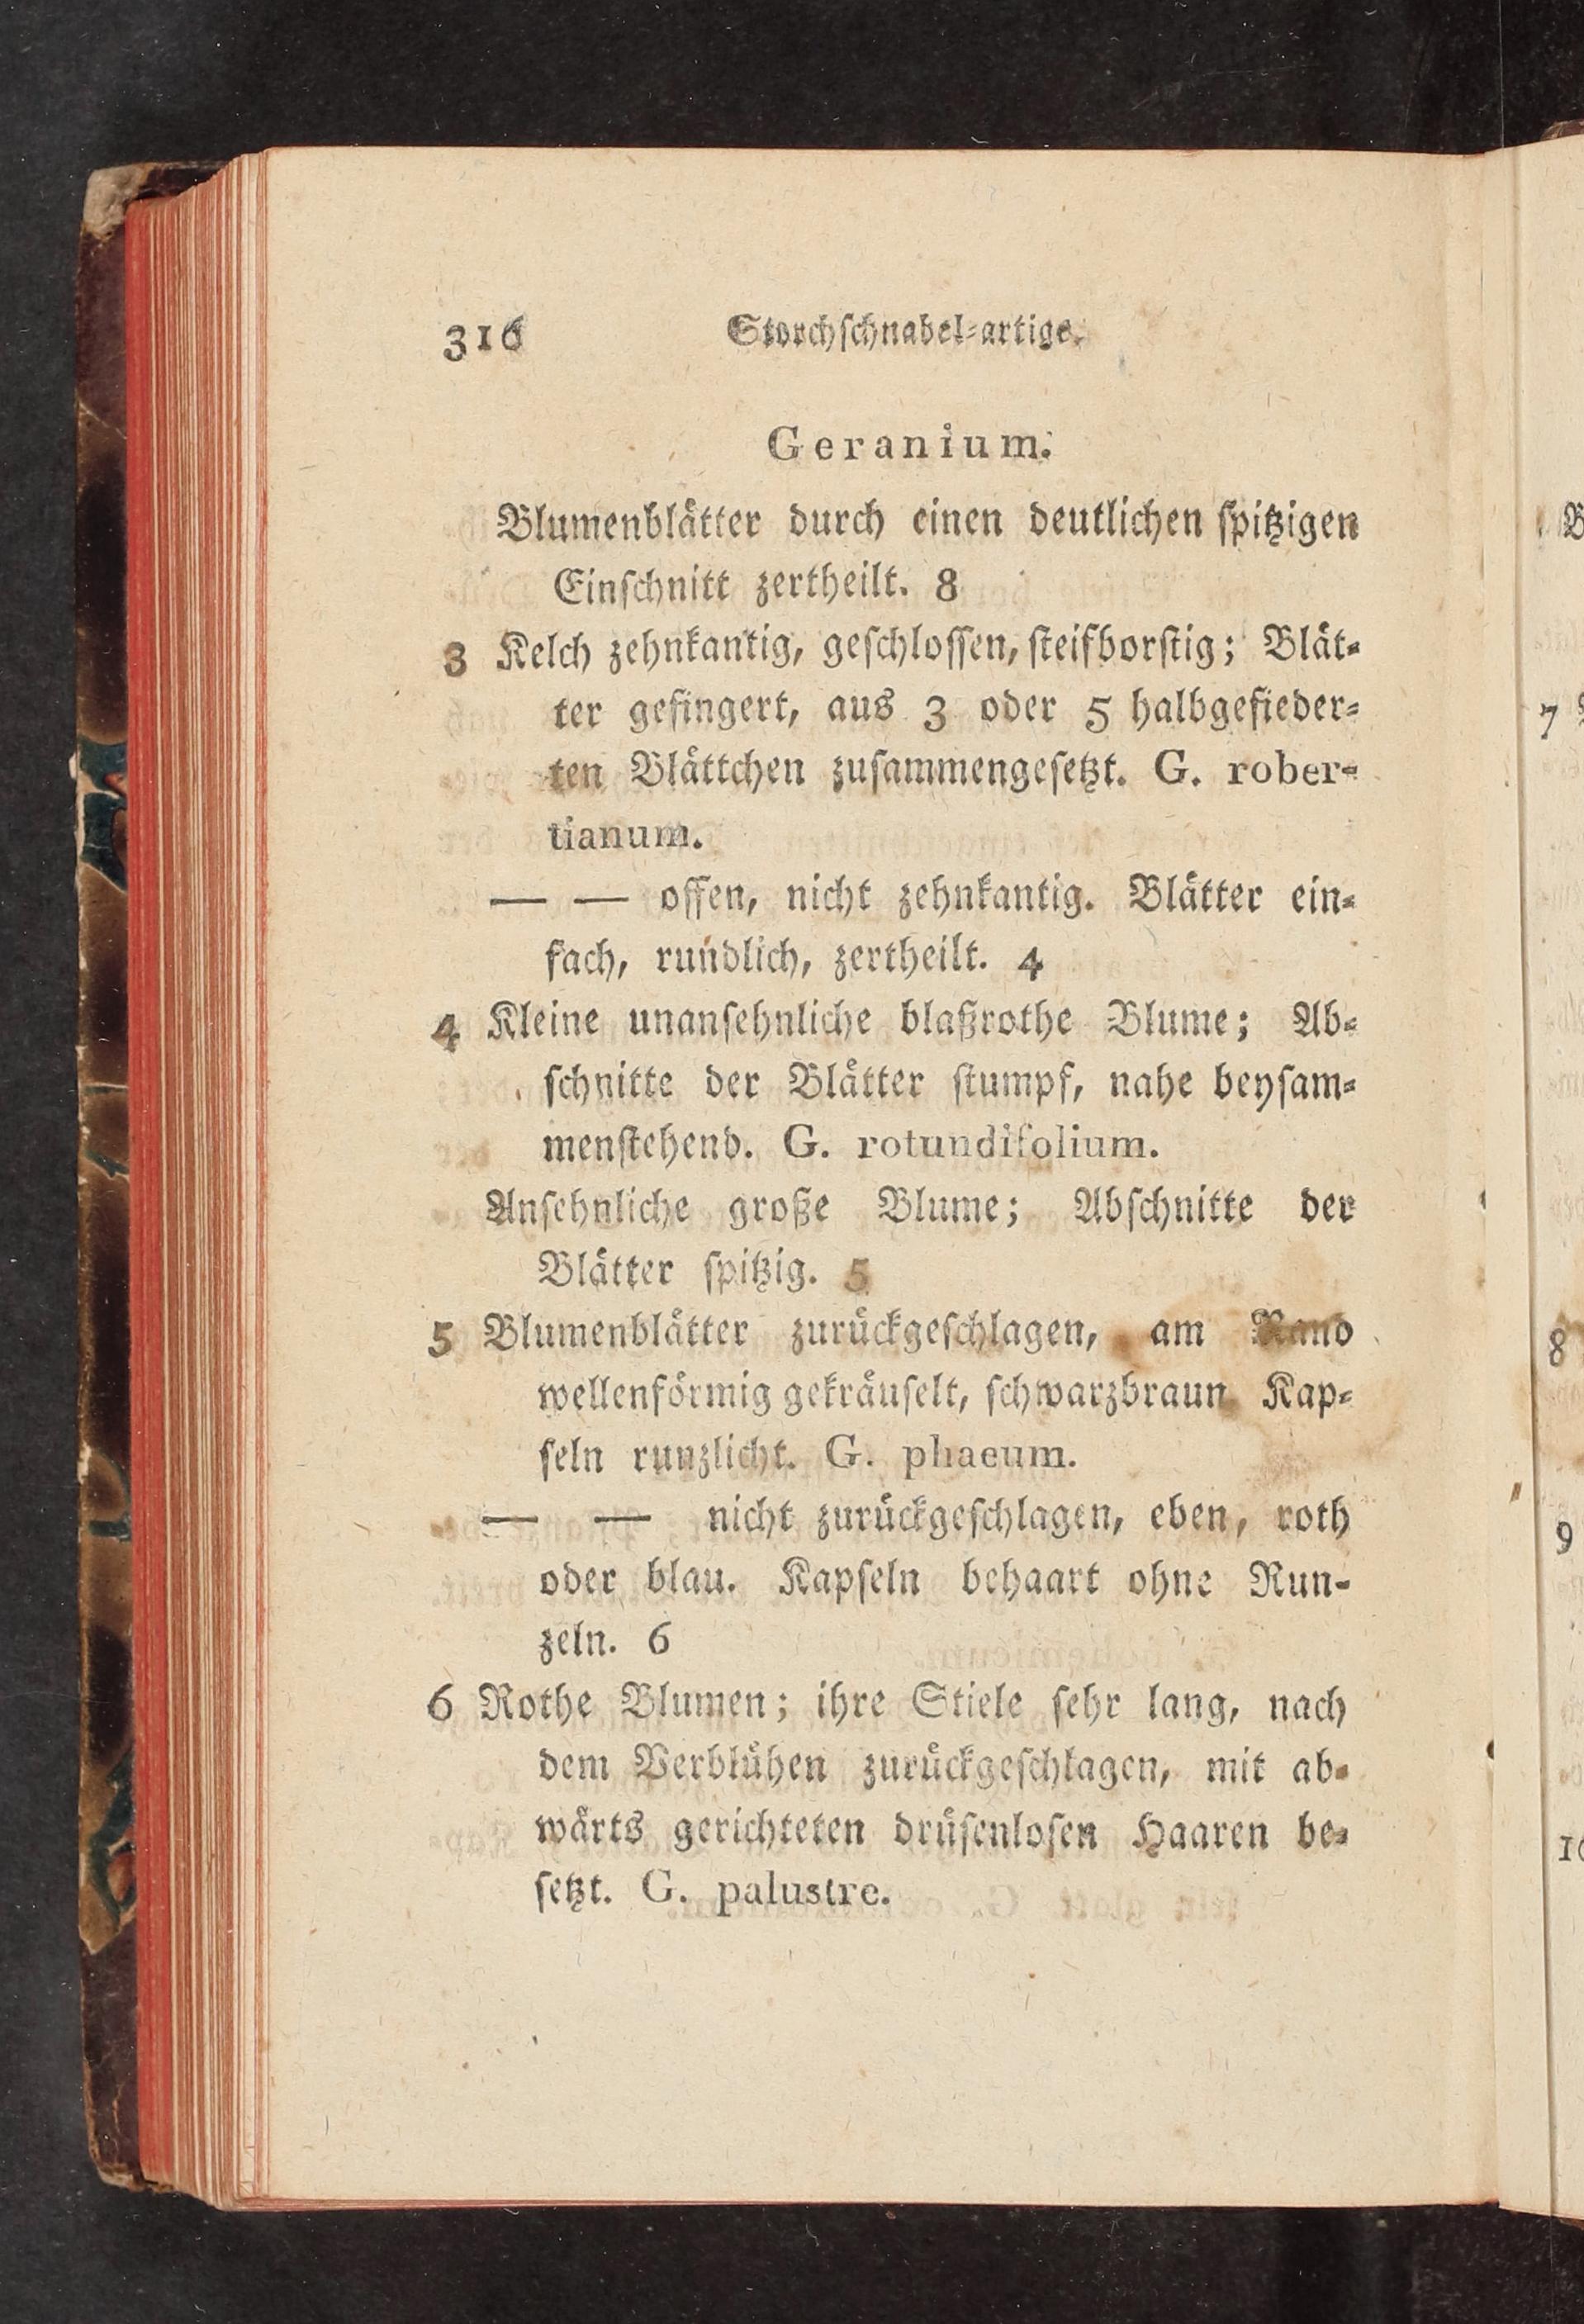 316 Storchſchnabel-artige.
Geranium.
Blumenblätter durch einen deutlichen ſpitzigen
Einſchnitt zertheilt. 8
3 Kelch zehnkantig, geſchloſſen, ſteifborſtig; Blät-
ter gefingert, aus 3 oder 5 halbgefieder-
ten Blättchen zuſammengeſetzt. G. rober-
tianum.
— — offen, nicht zehnkantig. Blätter ein-
fach, rundlich, zertheilt. 4
4 Kleine unanſehnliche blaßrothe Blume; Ab-
ſchnitte der Blätter ſtumpf, nahe beyſam-
menſtehend. G. rotundifolium.
Anſehnliche große Blume; Abſchnitte der
Blätter ſpitzig. 5
5 Blumenblätter zurückgeſchlagen, am Rand
wellenförmig gekräuſelt, ſchwarzbraun Kap-
ſeln runzlicht. G. phaeum.
— — nicht zurückgeſchlagen, eben, roth
oder blau. Kapſeln behaart ohne Run-
zeln. 6
6 Rothe Blumen; ihre Stiele ſehr lang, nach
dem Verblühen zurückgeſchlagen, mit ab-
wärts gerichteten drüſenloſen Haaren be-
ſetzt. G. palustre.
7
8
9